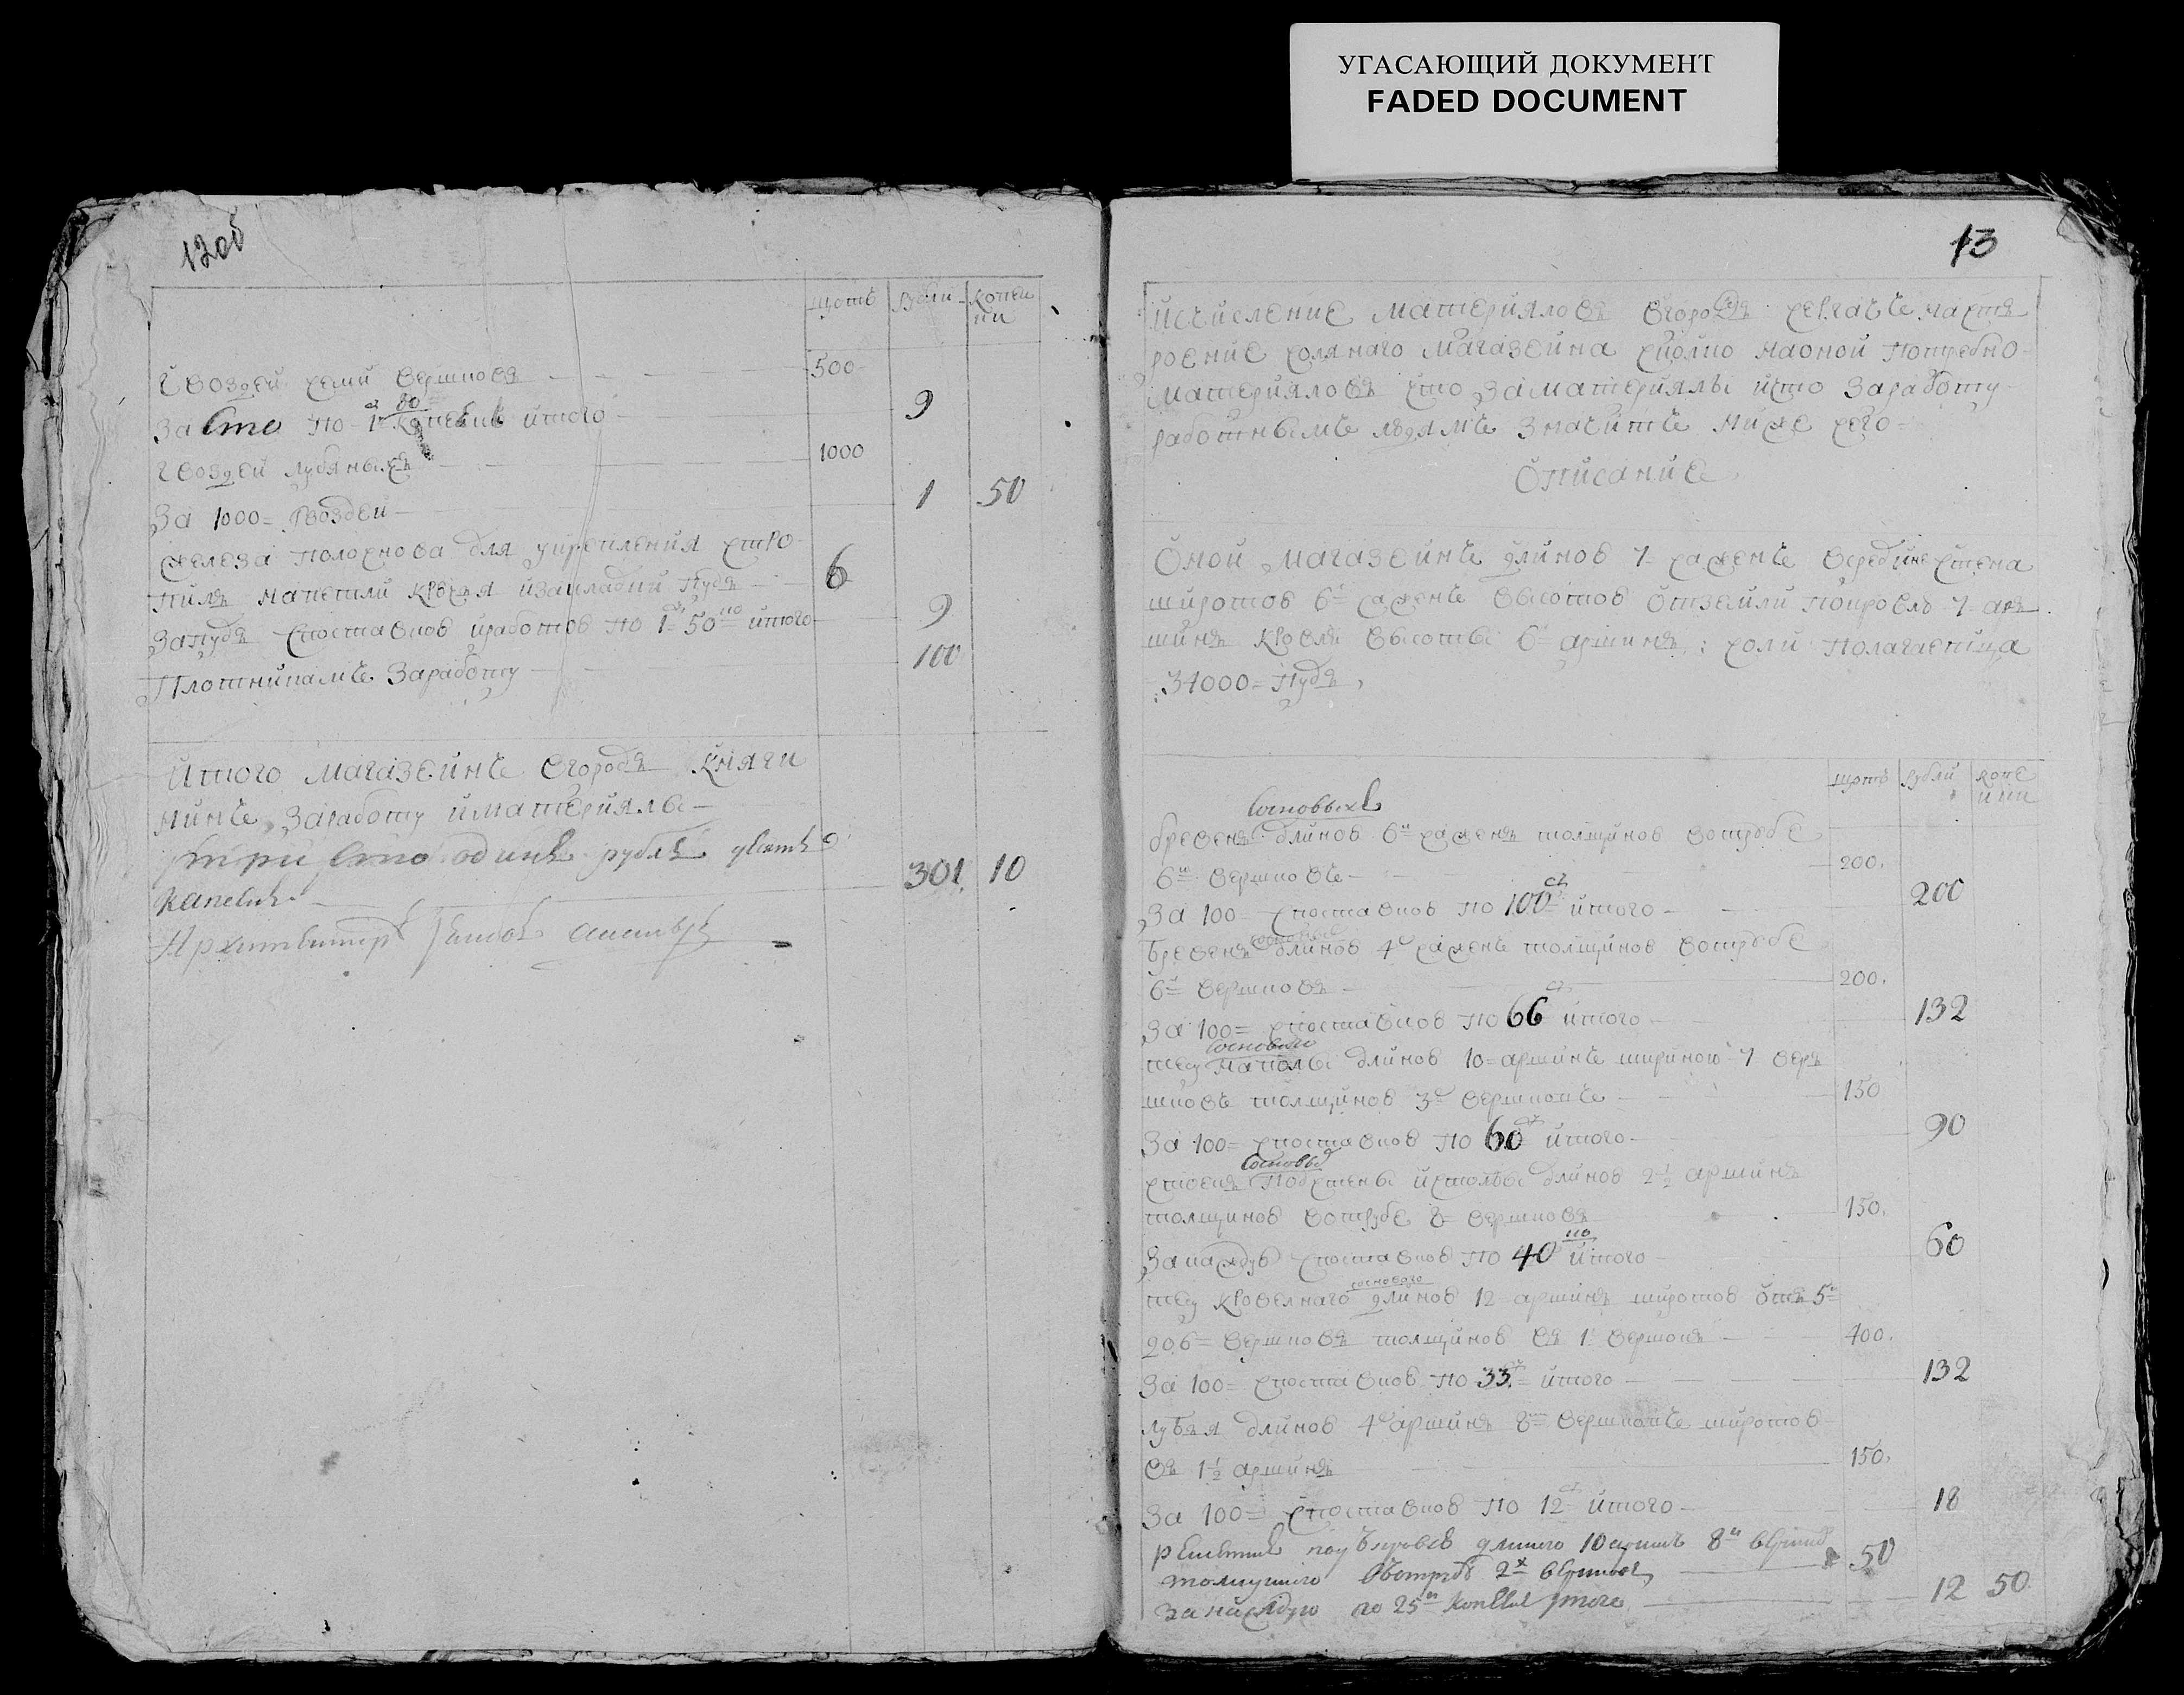 УГАСАЮЩИЙ ДОКУМЕНТ
FADED DOCUMENT
12об
щотъ рубли копеи
ки
гвоздей семи вершковъ 500
За сто по 1 80 итого 9
гвоздей лубяныхъ 1000
За 1000 гвоздей 1 50
железа полоснова для укрепления стро
пилъ напетли крючья изакладки пудъ 6
Запудъ споставкою иработою по 1 50 ко итого 9
Плотникамъ Заработу 100
Итого магазеинъ вгороде Княги
нинъ заработу иматериялы
три ста одинъ рубль
капеикъ 301 10
Архитекторъ
13
Исчисление материяловъ вгороде сергаче настъ
роение солянаго магазеина сколко наоной потребно
материяловъ что заматериялы ичто заработу
работнымъ людямъ значитъ ниже сего
Описание
Оной магазеинъ длиною 7 саженъ всредине стена
широтою 6 саженъ высотою отземли покровлю 7 аръ
шинъ кровли высоты 6 аршинъ: соли полагаетца
34000 пудъ
щотъ рубли копе
ики
Сосновыхъ
бревенъ длиною 6и саженъ толщиною вотрубе
6и вершковъ 200
За 100 споставкою по 100 итого 200
бревенъ длиною 4 саженъ толщиною вотрубе
6и вершковъ 200
За 100 споставкою по 66 итого 132
сосновыхъ
тесу наполы длиною 10 аршинъ шириною 7 веръ
шковъ толщиною 3 вершковъ 150
За 100 споставкою по 60 итого 90
Сосновыхъ
стоекъ подстены истолбы длиною 2½ аршинъ
толщиною вотрубе 8 вершковъ 150
Закаждую споставкою по 40 ко итого 60
сосноваго
тесу кровелнаго длиною 12 аршинъ широтою отъ 5и
до6 вершковъ толщиною въ 1 вершокъ 400
За 100 споставкою по 33 итого 132
лубья длиною 4 аршинъ 8 вершковъ широтою
въ 1½ аршинъ 150
За 100 споставкою по 12 итого 18
решетинъ под кровлю длиною 10 аршинъ 8и вершковъ
толщиною вотрубе 2х вершковъ 50
за каждую по 25и копеекъ итого 12 50